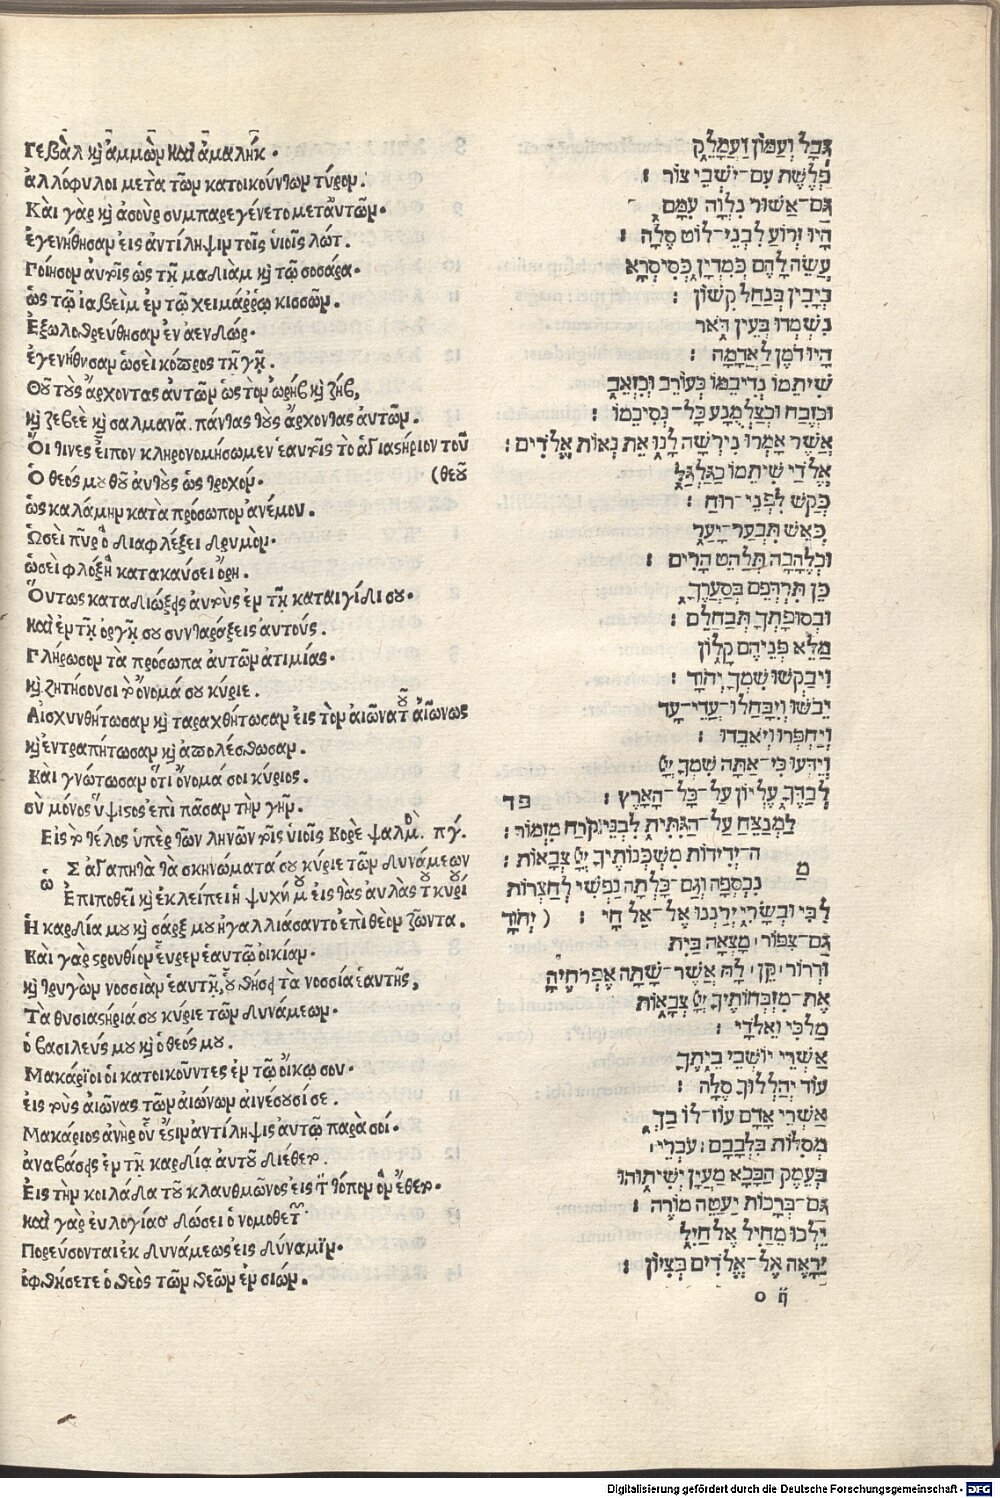 Γεβὰλ κỳ ἀμμὼν καὶ ἀμαλὴκ .
ἀλλόφυλοι μετὰ τῶν κατοικούντων τύρον .
Καὶ γὰρ κỳ ἀσοὺρ συμπαρεγένετο μετ' αυτῶν .
ἐγενήθησαν εἰς ἀντίληψιν τοῖς ὑιοῖς λώτ .
Ποίησον ἀυτοῖς ὡς τῇ μαδιὰμ κỳ τῷ σοσάρα .
ὡς τῷ ιαβεὶμ ἐν τῷ χειμάῤῥῳ κισσῶν .
Εξωλοθρεύθησαν ἐν αενδώρ .
ἐγενήθησαν ὡσεὶ κόπρος τῇ γῇ .
Θοῦ τοὺς ἄρχοντας αυτῶν ὡς τὸν ὠρὴβ κỳ ζὴβ ,
κỳ ζεβεὲ κỳ σαλμανᾶ . πάντας τοὺς ἄρχοντας αυτῶν .
Ὅι τινες εἶπον κληρονομήσωμεν ἑαυτοῖς τὸ ἁγιαστήριον τοῦ
Ὁ θεός μου θοῦ ἀυτοὺς ὡς τροχόν . (θεοῦ
ὡς καλάμην κατὰ πρόσωπον ἀνέμου .
Ὡσεὶ πῦρ ὃ διαφλέξει δρυμόν .
ὡσεὶ φλὸξ ἢ κατακαύσει ὄρη .
Ὅυτως καταδιώξεις ἀυτοὺς ἐν τῇ καταιγίδι σου .
καὶ ἐν τῇ ὀργῇ σου συνταράξεις ἀυτούς .
Πλήρωσον τὰ πρόσωπα ἀυτῶν ἀτιμίας .
κỳ ζητήσουσι τὸ ὄνομά σου κύριε .
Αἰσχυνθήτωσαν κỳ ταραχθήτωσαν εἰς τὸν αἰῶνα τοῦ αἰῶνος
κỳ ἐντραπήτωσαν κỳ ἀπολέσθωσαν .
Καὶ γνώτωσαν ὅτι ὄνομά σοι κύριος .
σὺ μόνος ὕψιστος ἐπὶ πᾶσαν τὴν γῆν .
Εἰς τὸ τέλος ὑπὲρ τῶν ληνῶν τοῖς ὑιοῖς Κορὲ ψαλμ . πγ .
Ὡς ἀγαπητὰ τὰ σκηνώματά σου κύριε τῶν δυνάμεων
Ἐπιποθεῖ κỳ ἐκλείπει ἡ ψυχή μου εἰς τὰς αυλὰς τοῦ κυρί
Η καρδία μου κỳ σάρξ μου ἠγαλλιάσαντο ἐπὶ θεὸν ζῶντα .
Καὶ γὰρ στρουθίον εὗρεν ἑαυτῷ ὀικίαν .
κỳ τρυγὼν νοσσιὰν ἑαυτῇ , οὗ θήσει τὰ νοσσία ἑαυτῆς ,
Τὰ θυσιαστήριά σου κύριε τῶν δυνάμεων .
ὁ βασιλεύς μου κỳ ὁ θεός μου .
Μακάριοι οἱ κατοικοῦντες ἐν τῷ ὄικω σου .
εἰς τοὺς αἰῶνας τῶν αἰώνων αἰνέσουσί σε .
Μακάριος ἀνὴρ οὗ ἐστιν ἀντίληψις ἀυτῷ παρὰ σοί .
ἀναβάσεις ἐν τῇ καρδίᾳ ἀυτοῦ διέθετο .
Εἰς τὴν κοιλάδα τοῦ κλαυθμῶνος εἰς τὸν τόπον ὃν ἔθετο .
καὶ γὰρ ἐυλογίας δώσει ὁ νομοθετῶν
Πορεύσονται ἐκ δυνάμεως εἰς δύναμιν .
ὀφθήσεται ὁ θεὸς τῶν θεῶν ἐν σιών .
גְּבָל וְעַמּוֹן וַעֲמָלֵק
פְּלֶשֶׁת עִם־יֹשְׁבֵי צוֹר :
גַּם־אַשּׁוּר נִלְוָה עִמָּם
הָיוּ זְרוֹעַ לִבְנֵי־לוֹט סֶלָה :
עֲשֵׂה לָהֶם כְּמִדְיָן כְּסִיסְרָא
כְיָבִין בְּנַחַל קִשׁוֹן :
נִשְׁמְדוּ בְעֵין דֹּאר
הָיוּ דֹמֶן לַאֲדָמָה :
שִׁיתֵמוֹ נְדִיבֵמוֹ כְּעוֹרֵב וְכִזְאֵב
וּכְזֶבַח וּכְצַלְמֻנָּע כָּל־נְסִיכֵמוֹ :
אֲשֶׁר אָמְרוּ נִירְשָׁה לָּנוּ אֵת נְאוֹת אֱלֹדִים :
אֱלֹדַי שִׁיתֵמוֹ כַגַּלְגַּל
כְּקַשׁ לִפְנֵי־רוּחַ :
כְּאֵשׁ תִּבְעַר־יָעַר
וּכְלֶהָבָה תְּלַהֵט הָרִים :
כֵּן תִּרְדְּפֵם בְּסַעֲרֶךָ
וּבְסוּפָתְךָ תְבַהֲלֵם :
מַלֵּא פְנֵיהֶם קָלוֹן
וִיבַקְשׁוּ שִׁמְךָ יְהֹוָד :
יֵבֹשׁוּ וְיִבָּהֲלוּ־עֲדֵי־עַד
וְיַחְפְּרוּ וְיֹאבֵדוּ :
וְיֵדְעוּ כִּי־אַתָּה שִׁמְךָ יְיָ
לְבַדֶּךָ עֶלְיוֹן עַל־כָּל־הָאָרֶץ : פד
לַמְנַצֵּחַ עַל־הַגִּתִּית לִבְנֵי־קֹרַח מִזְמוֹר :
מַה־יְּדִידוֹת מִשְׁכְּנוֹתֶיךָ יְיָ צְבָאוֹת :
נִכְסְפָה וְגַם־כָּלְתָה נַפְשִׁי לְחַצְרוֹת
לִבִּי וּבְשָׂרִי יְרַנְּנוּ אֶל־אֵל חָי : ( יְהֹוָד
גַּם־צִפּוֹר מָצְאָה בַיִת
וּדְרוֹר קֵן לָהּ אֲשֶׁר־שָׁתָה אֶפְרֹחֶיהָ
אֶת־מִזְבְּחוֹתֶיךָ יְיָ צְבָאוֹת
מַלְכִּי וֵאלֹדָי :
אַשְׁרֵי יוֹשְׁבֵי בֵיתֶךָ
עוֹד יְהַלְלוּךָ סֶּלָה :
אַשְׁרֵי אָדָם עוֹז־לוֹ בָךְ
מְסִלּוֹת בִּלְבָבָם : עֹבְרֵי
בְּעֵמֶק הַבָּכָא מַעְיָן יְשִׁיתוּהוּ
גַּם־בְּרָכוֹת יַעְטֶה מוֹרֶה :
יֵלְכוּ מֵחַיִל אֶל חָיִל
יֵרָאֶה אֶל־אֱלֹדִים בְּצִיּוֹן :
o ij
Digitalisierung gefördert durch die Deutsche Forschungsgemeinschaft - DFG